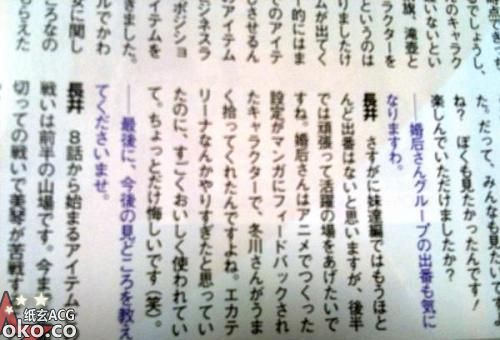 るでしょうし、
のキャラク
いないとい
旗、滝壺と
ラクターを
というのは
りましたけ
ムが出てく
でのアイテ
的にはま
しさせるん
のアイテム
ジネスラ
ポジショ
イテムを
きました。
ルでかわ
に関し
ころなの
もらえた
た。だって、みんなも見たい
ね? ぼくも見たかったんです!
楽しんでいただけましたか?
——婚后さんグループの出番も気に
なりますわ。
長井 さすがに妹達編ではもうほと
んど出番はないと思いますが、後半
では頑張って活躍の場をあげたいで
すね。婚后さんはアニメでつくった
設定がマンガにフィードバックされ
たキャラクターで、冬川さんがうま
く拾ってくれたんですよね。エカテ
リーナなんかやりすぎたと思ってい
たのに、すごくおいしく使われてい
て。ちょっとだけ悔しいです(笑)。
——最後に、今後の見どころを教え
てくださいませ。
長井 8話から始まるアイテム
戦いは前半の山場です。今ま
切っての戦いで美琴が苦戦す
纸玄ACG
oko.co